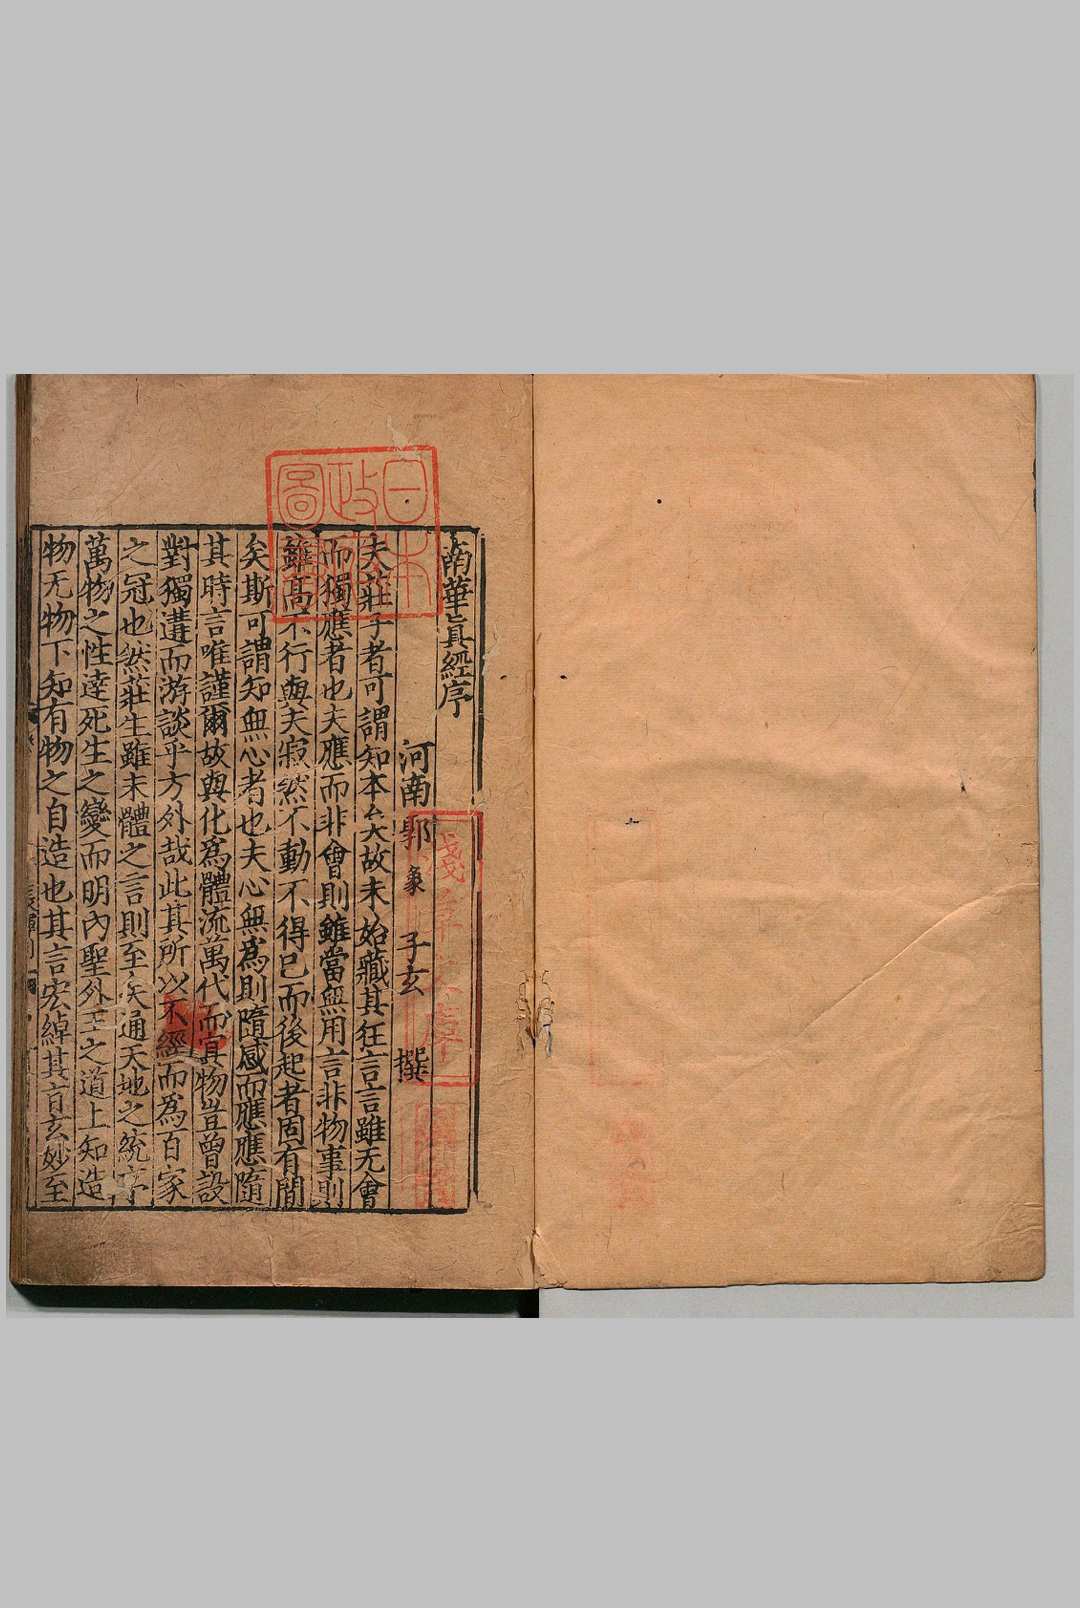 南華真經序
河南郭象子玄撰
夫莊子者可謂知本矣故未始藏其狂言言雖无會
而獨應者也夫應而非會則雖當無用言非物事則
雖高不行與夫寂然不動不得已而後起者固有間
矣斯可謂知無心者也夫心無為則隨感而應應隨
其時言唯謹爾故與化為體流萬代而冥物豈曾設
對獨遘而游談乎方外哉此其所以不經而為百家
之冠也然莊生雖未體之言則至矣通天地之統序
萬物之性達死生之變而明內聖外王之道上知造
物无物下知有物之自造也其言宏綽其旨玄妙至
日本
政
圖